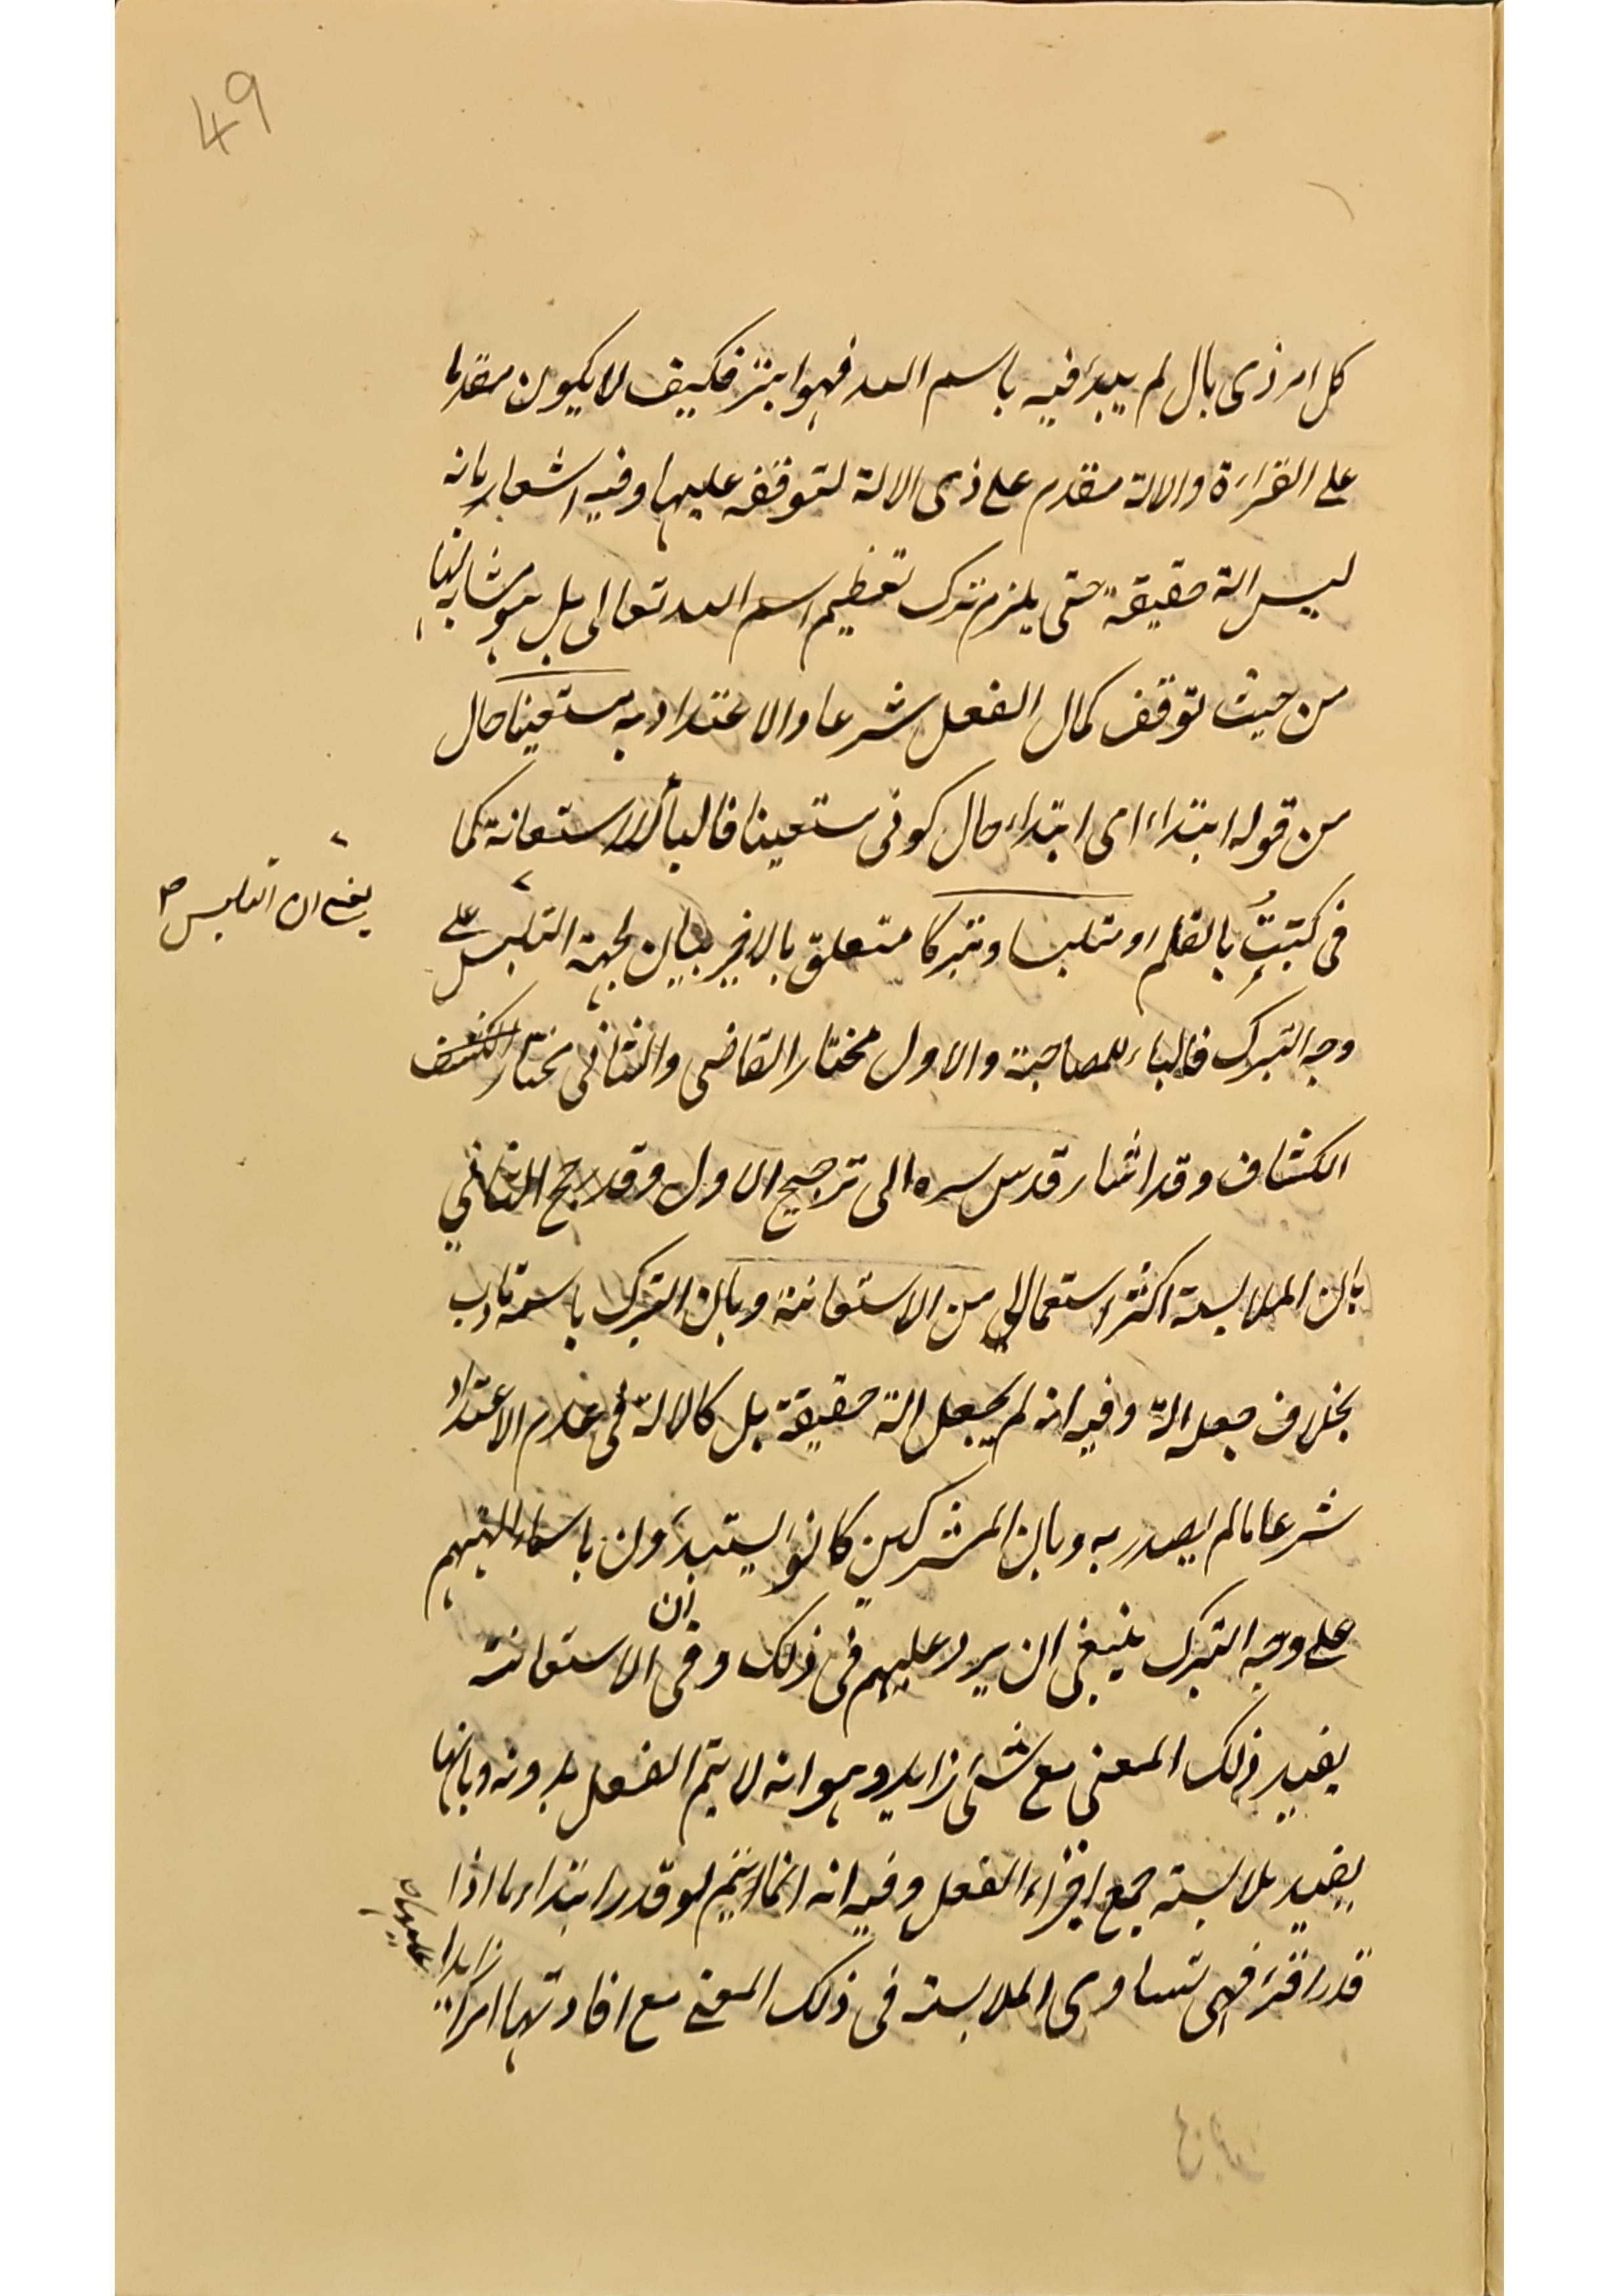 49
كل امر ذى بال لم يبدأ فيه باسم الله فهو ابتر فكيف لا يكون مقدما
على القراءة والالة مقدم على ذى الالة لتوقفه عليها وفيه اشعار بانه
ليس الة حقيقة حتى يلزم ترك تعظيم اسم الله تعالى بل هو مشابه لها
من حيث توقف كمال الفعل شرعا والاعتداد به مستعينا حال
من قوله ابتداء اى ابتداء حال كونى مستعينا فالباء للاستعانة كما
فى كتبت بالقلم او متلبسا وتبركا متعلق بالاخير بيان لجهة التلبس على
يعنى ان التلبس
وجه التبرك فالباء للمصاحبة والاول مختار القاضى والثانى مختار الكشف
الكشاف وقد اشار قدس سره الى ترجيح الاول وقد رجح الثانى
بان الملابسة اكثر استعمالا من الاستعانة وبان التبرك باسمه تادب
بخلاف جعله الة وفيه انه لم يجعل الة حقيقة بل كالالة فى عدم الاعتداد
شرعا ما لم يصدر به وبان المشركين كانوا يبتدؤن باسماء الهتهم
على وجه التبرك ينبغى ان يرد عليهم فى ذلك وفى ان الاستعانة
يفيد ذلك المعنى مع شئ زايد وهو انه لا يتم الفعل بدونه وبانها
يفيد ملابسة جميع اجزاء الفعل وفيه انه انما يتم لو قدر ابتداء ما اذا
قدر اقرء فهى تساوى الملابسة فى ذلك المعنى مع افادتها امرا زايدا
عليها